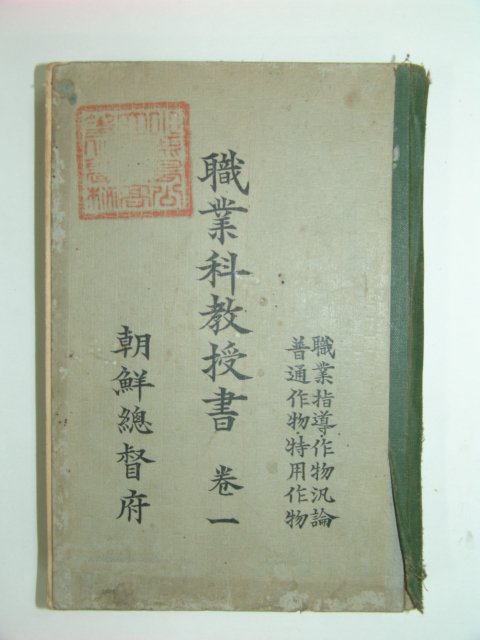 職業指導作物汎論
普通作物・特用作物
職業科教授書 卷一
朝鮮總督府